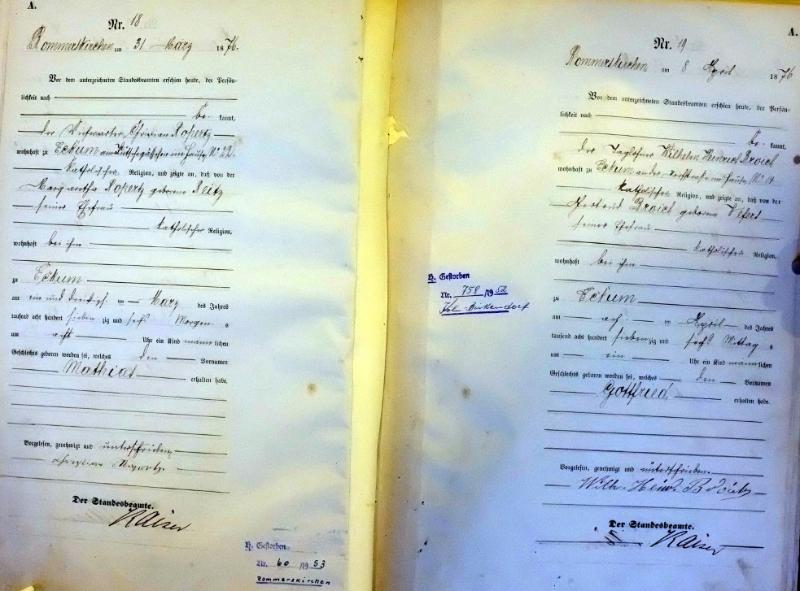 A.
Nr. 18
Rommerskirchen am 31 März 1876.
Vor dem unterzeichneten Standesbeamten erschien heute, der Persön-
lichkeit nach
be kannt,
der Ropertz
wohnhaft zu Eckum im Hause No 22
katholischer Religion, und zeigte an, daß von der
Margaretha Ropertz geborene Reitz
seiner Ehefrau
katholischer Religion,
wohnhaft bei ihm
zu Eckum
am ein und dreißigsten März des Jahres
tausend acht hundert sieben zig und sechs Morgens
um acht Uhr ein Kind männlichen
Geschlechts geboren worden sei, welches den Vornamen
Mathias
erhalten habe.
Vorgelesen, genehmigt und unterschrieben
Der Standesbeamte.
Kaiser
H. Gestorben
Nr. 60/1953
Rommerskirchen
A.
Nr. 19
Rommerskirchen am 8 April 1876
Vor dem unterzeichneten Standesbeamten erschien heute, der Persön-
lichkeit nach
be kannt,
der Taglöhner Wilhelm Heinrich Broich
wohnhaft zu Eckum im Hause No
katholischer Religion, und zeigte an, daß von der
Gertrud Broich geborene
seiner Ehefrau
katholischer Religion,
wohnhaft bei ihm
zu Eckum
am April des Jahres
tausend acht hundert sieben zig und sechs Mittag
um ein Uhr ein Kind männlichen
Geschlechts geboren worden sei, welches den Vornamen
Gottfried
erhalten habe.
Vorgelesen, genehmigt und unterschrieben.
Wilh. Heinr. Broich
Der Standesbeamte.
Kaiser
H. Gestorben
Nr. 758/1952
Köln-Bickendorf